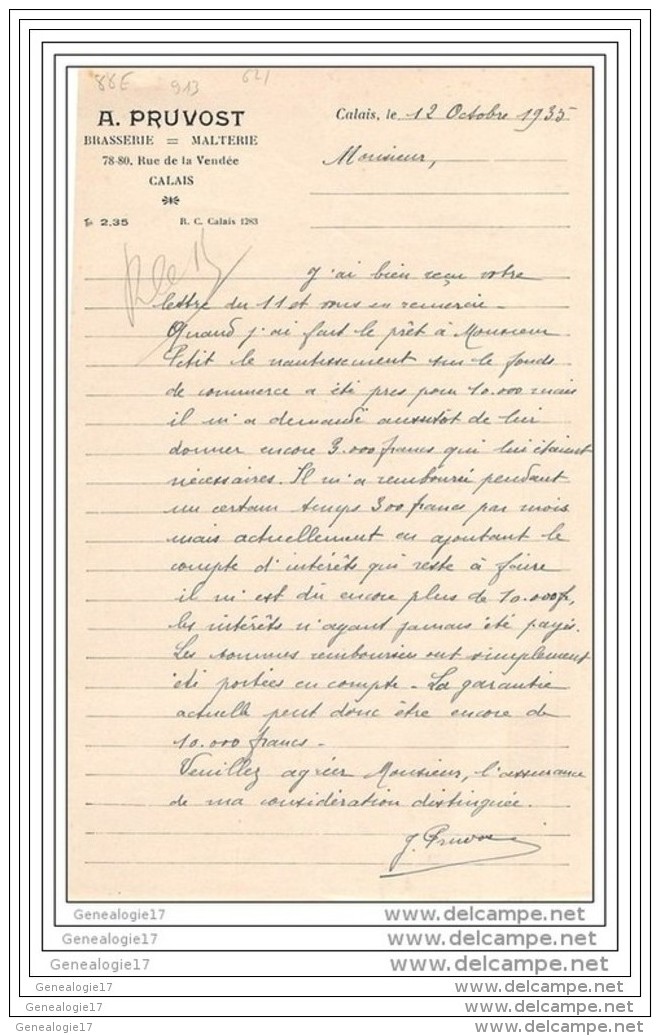 88E 913 621
A. PRUVOST
BRASSERIE = MALTERIE
78-80, Rue de la Vendée
CALAIS
2.35 R. C. Calais 1283
Calais, le 12 Octobre 1935
Monsieur,
J'ai bien reçu votre
lettre du 11 et vous en remercie -
Quand j'ai fait le prêt à Monsieur
Petit le nantissement sur le fonds
de commerce a été pris pour 10.000 mais
il m'a demandé aussitôt de lui
donner encore 3.000 francs qui lui étaient
nécessaires. Il m'a remboursé pendant
un certain temps 300 francs par mois
mais actuellement en ajoutant le
compte d'intérêts qui reste à faire
il m'est dû encore plus de 10.000 fr,
les intérêts n'ayant jamais été payés.
Les sommes remboursées ont simplement
été portées en compte - La garantie
actuelle peut donc être encore de
10.000 francs -
Veuillez agréer Monsieur, l'assurance
de ma considération distinguée.
J. Pruvost
Genealogie17 www.delcampe.net
Genealogie17 www.delcampe.net
Genealogie17 www.delcampe.net
Genealogie17 www.delcampe.net
Genealogie17 www.delcampe.net
Genealogie17 www.delcampe.net